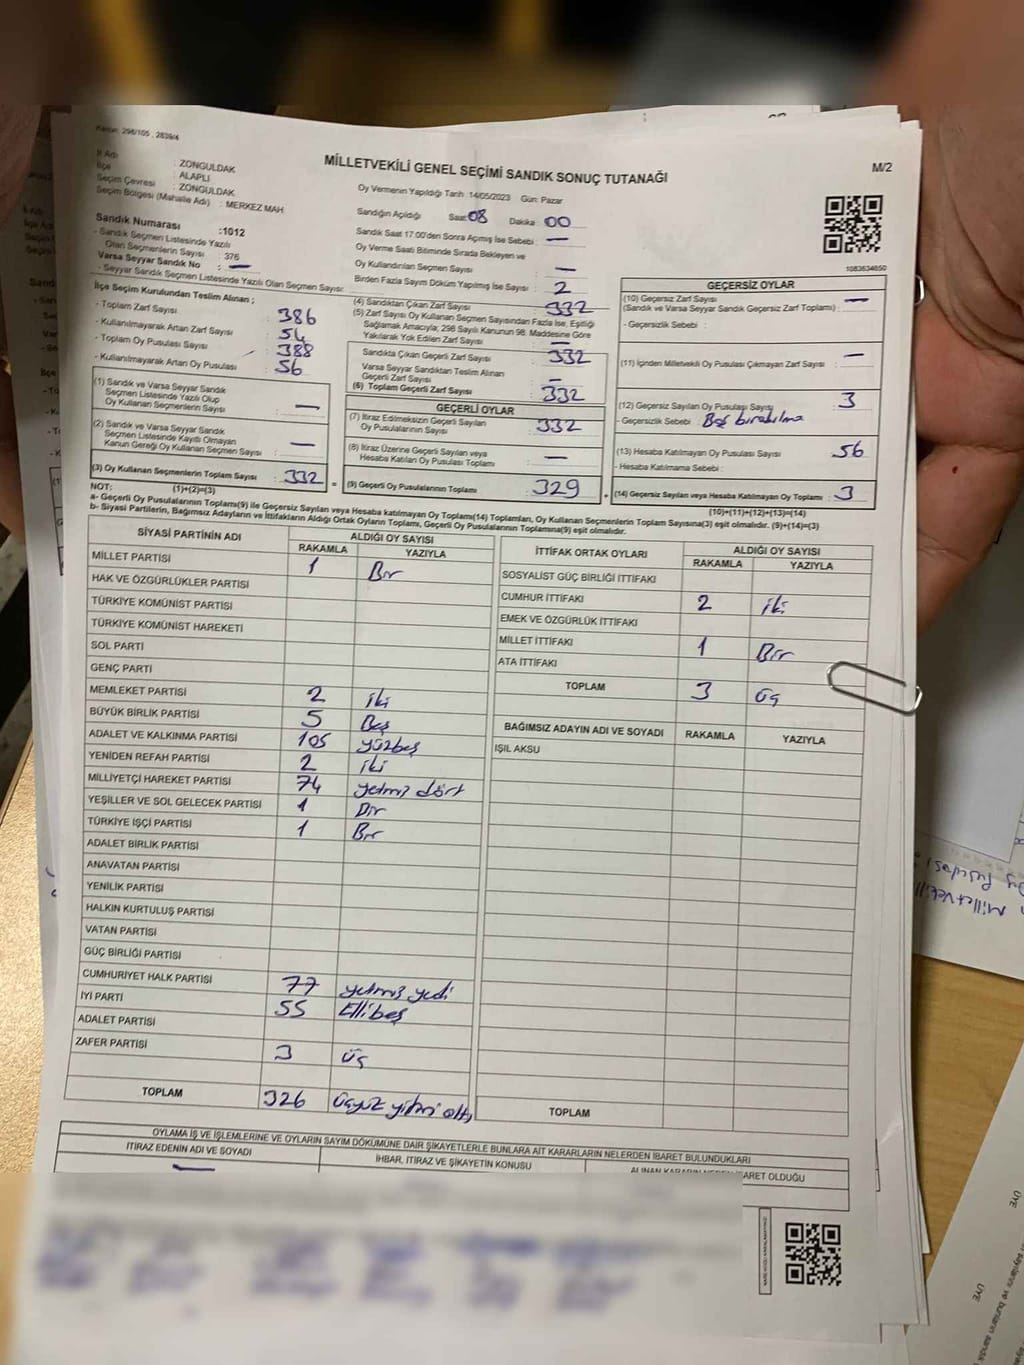 Kanun: 298/105, 2839/4
MİLLETVEKİLİ GENEL SEÇİMİ SANDIK SONUÇ TUTANAĞI
M/2
İl Adı : ZONGULDAK
İlçe : ALAPLI
Seçim Çevresi : ZONGULDAK
Seçim Bölgesi (Mahalle Adı) : MERKEZ MAH
Sandık Numarası :1012
- Sandık Seçmen Listesinde Yazılı
Olan Seçmenlerin Sayısı : 376
Varsa Seyyar Sandık No : —
- Seyyar Sandık Seçmen Listesinde Yazılı Olan Seçmen Sayısı:
Oy Vermenin Yapıldığı Tarih: 14/05/2023 Gün: Pazar
Sandığın Açıldığı Saat: 08 Dakika: 00
Sandık Saat 17.00'den Sonra Açılmış İse Sebebi : —
Oy Verme Saati Bitiminde Sırada Bekleyen ve
Oy Kullandırılan Seçmen Sayısı : —
Birden Fazla Sayım Döküm Yapılmış İse Sayısı : 2
1083634650
İlçe Seçim Kurulundan Teslim Alınan ;
- Toplam Zarf Sayısı : 386
- Kullanılmayarak Artan Zarf Sayısı : 54
- Toplam Oy Pusulası Sayısı : 388
- Kullanılmayarak Artan Oy Pusulası : 56
(1) Sandık ve Varsa Seyyar Sandık
Seçmen Listesinde Yazılı Olup
Oy Kullanan Seçmenlerin Sayısı : —
(2) Sandık ve Varsa Seyyar Sandık
Seçmen Listesinde Kayıtlı Olmayan
Kanun Gereği Oy Kullanan Seçmen Sayısı : —
(3) Oy Kullanan Seçmenlerin Toplam Sayısı : 332
(1)+(2)=(3)
(4) Sandıktan Çıkan Zarf Sayısı : 332
(5) Zarf Sayısı Oy Kullanan Seçmen Sayısından Fazla İse, Eşitliği
Sağlamak Amacıyla; 298 Sayılı Kanunun 98. Maddesine Göre
Yakılarak Yok Edilen Zarf Sayısı : —
Sandıkta Çıkan Geçerli Zarf Sayısı : 332
Varsa Seyyar Sandıktan Teslim Alınan
Geçerli Zarf Sayısı : —
(6) Toplam Geçerli Zarf Sayısı : 332
GEÇERLİ OYLAR
(7) İtiraz Edilmeksizin Geçerli Sayılan
Oy Pusulalarının Sayısı : 332
(8) İtiraz Üzerine Geçerli Sayılan veya
Hesaba Katılan Oy Pusulası Toplamı : —
= (9) Geçerli Oy Pusulalarının Toplamı : 329
GEÇERSİZ OYLAR
(10) Geçersiz Zarf Sayısı
(Sandık ve Varsa Seyyar Sandık Geçersiz Zarf Toplamı) : —
- Geçersizlik Sebebi :
(11) İçinden Milletvekili Oy Pusulası Çıkmayan Zarf Sayısı : —
(12) Geçersiz Sayılan Oy Pusulası Sayısı : 3
- Geçersizlik Sebebi : Boş bırakılma
(13) Hesaba Katılmayan Oy Pusulası Sayısı : 56
- Hesaba Katılmama Sebebi :
+ (14) Geçersiz Sayılan veya Hesaba Katılmayan Oy Toplamı : 3
(10)+(11)+(12)+(13)=(14)
NOT:
a- Geçerli Oy Pusulalarının Toplamı(9) ile Geçersiz Sayılan veya Hesaba Katılmayan Oy Toplamı(14) Toplamları, Oy Kullanan Seçmenlerin Toplam Sayısına(3) eşit olmalıdır. (9)+(14)=(3)
b- Siyasi Partilerin, Bağımsız Adayların ve İttifakların Aldığı Ortak Oyların Toplamı, Geçerli Oy Pusulalarının Toplamına(9) eşit olmalıdır.
SİYASİ PARTİNİN ADI ALDIĞI OY SAYISI
RAKAMLA YAZIYLA
MİLLET PARTİSİ 1 Bir
HAK VE ÖZGÜRLÜKLER PARTİSİ
TÜRKİYE KOMÜNİST PARTİSİ
TÜRKİYE KOMÜNİST HAREKETİ
SOL PARTİ
GENÇ PARTİ
MEMLEKET PARTİSİ 2 iki
BÜYÜK BİRLİK PARTİSİ 5 Beş
ADALET VE KALKINMA PARTİSİ 105 yüzbeş
YENİDEN REFAH PARTİSİ 2 iki
MİLLİYETÇİ HAREKET PARTİSİ 74 yetmiş dört
YEŞİLLER VE SOL GELECEK PARTİSİ 1 Bir
TÜRKİYE İŞÇİ PARTİSİ 1 Bir
ADALET BİRLİK PARTİSİ
ANAVATAN PARTİSİ
YENİLİK PARTİSİ
HALKIN KURTULUŞ PARTİSİ
VATAN PARTİSİ
GÜÇ BİRLİĞİ PARTİSİ
CUMHURİYET HALK PARTİSİ 77 yetmiş yedi
İYİ PARTİ 55 Ellibeş
ADALET PARTİSİ
ZAFER PARTİSİ 3 üç
TOPLAM 326 üçyüz yirmi altı
İTTİFAK ORTAK OYLARI ALDIĞI OY SAYISI
RAKAMLA YAZIYLA
SOSYALİST GÜÇ BİRLİĞİ İTTİFAKI
CUMHUR İTTİFAKI 2 iki
EMEK VE ÖZGÜRLÜK İTTİFAKI
MİLLET İTTİFAKI 1 Bir
ATA İTTİFAKI
TOPLAM 3 üç
BAĞIMSIZ ADAYIN ADI VE SOYADI RAKAMLA YAZIYLA
IŞIL AKSU
TOPLAM
OYLAMA İŞ VE İŞLEMLERİNE VE OYLARIN SAYIM DÖKÜMÜNE DAİR ŞİKAYETLERLE BUNLARA AİT KARARLARIN NELERDEN İBARET BULUNDUKLARI
İTİRAZ EDENİN ADI VE SOYADI İHBAR, İTİRAZ VE ŞİKAYETİN KONUSU ALINAN KARARIN NEDEN İBARET OLDUĞU
—
ÜYE
ÜYE